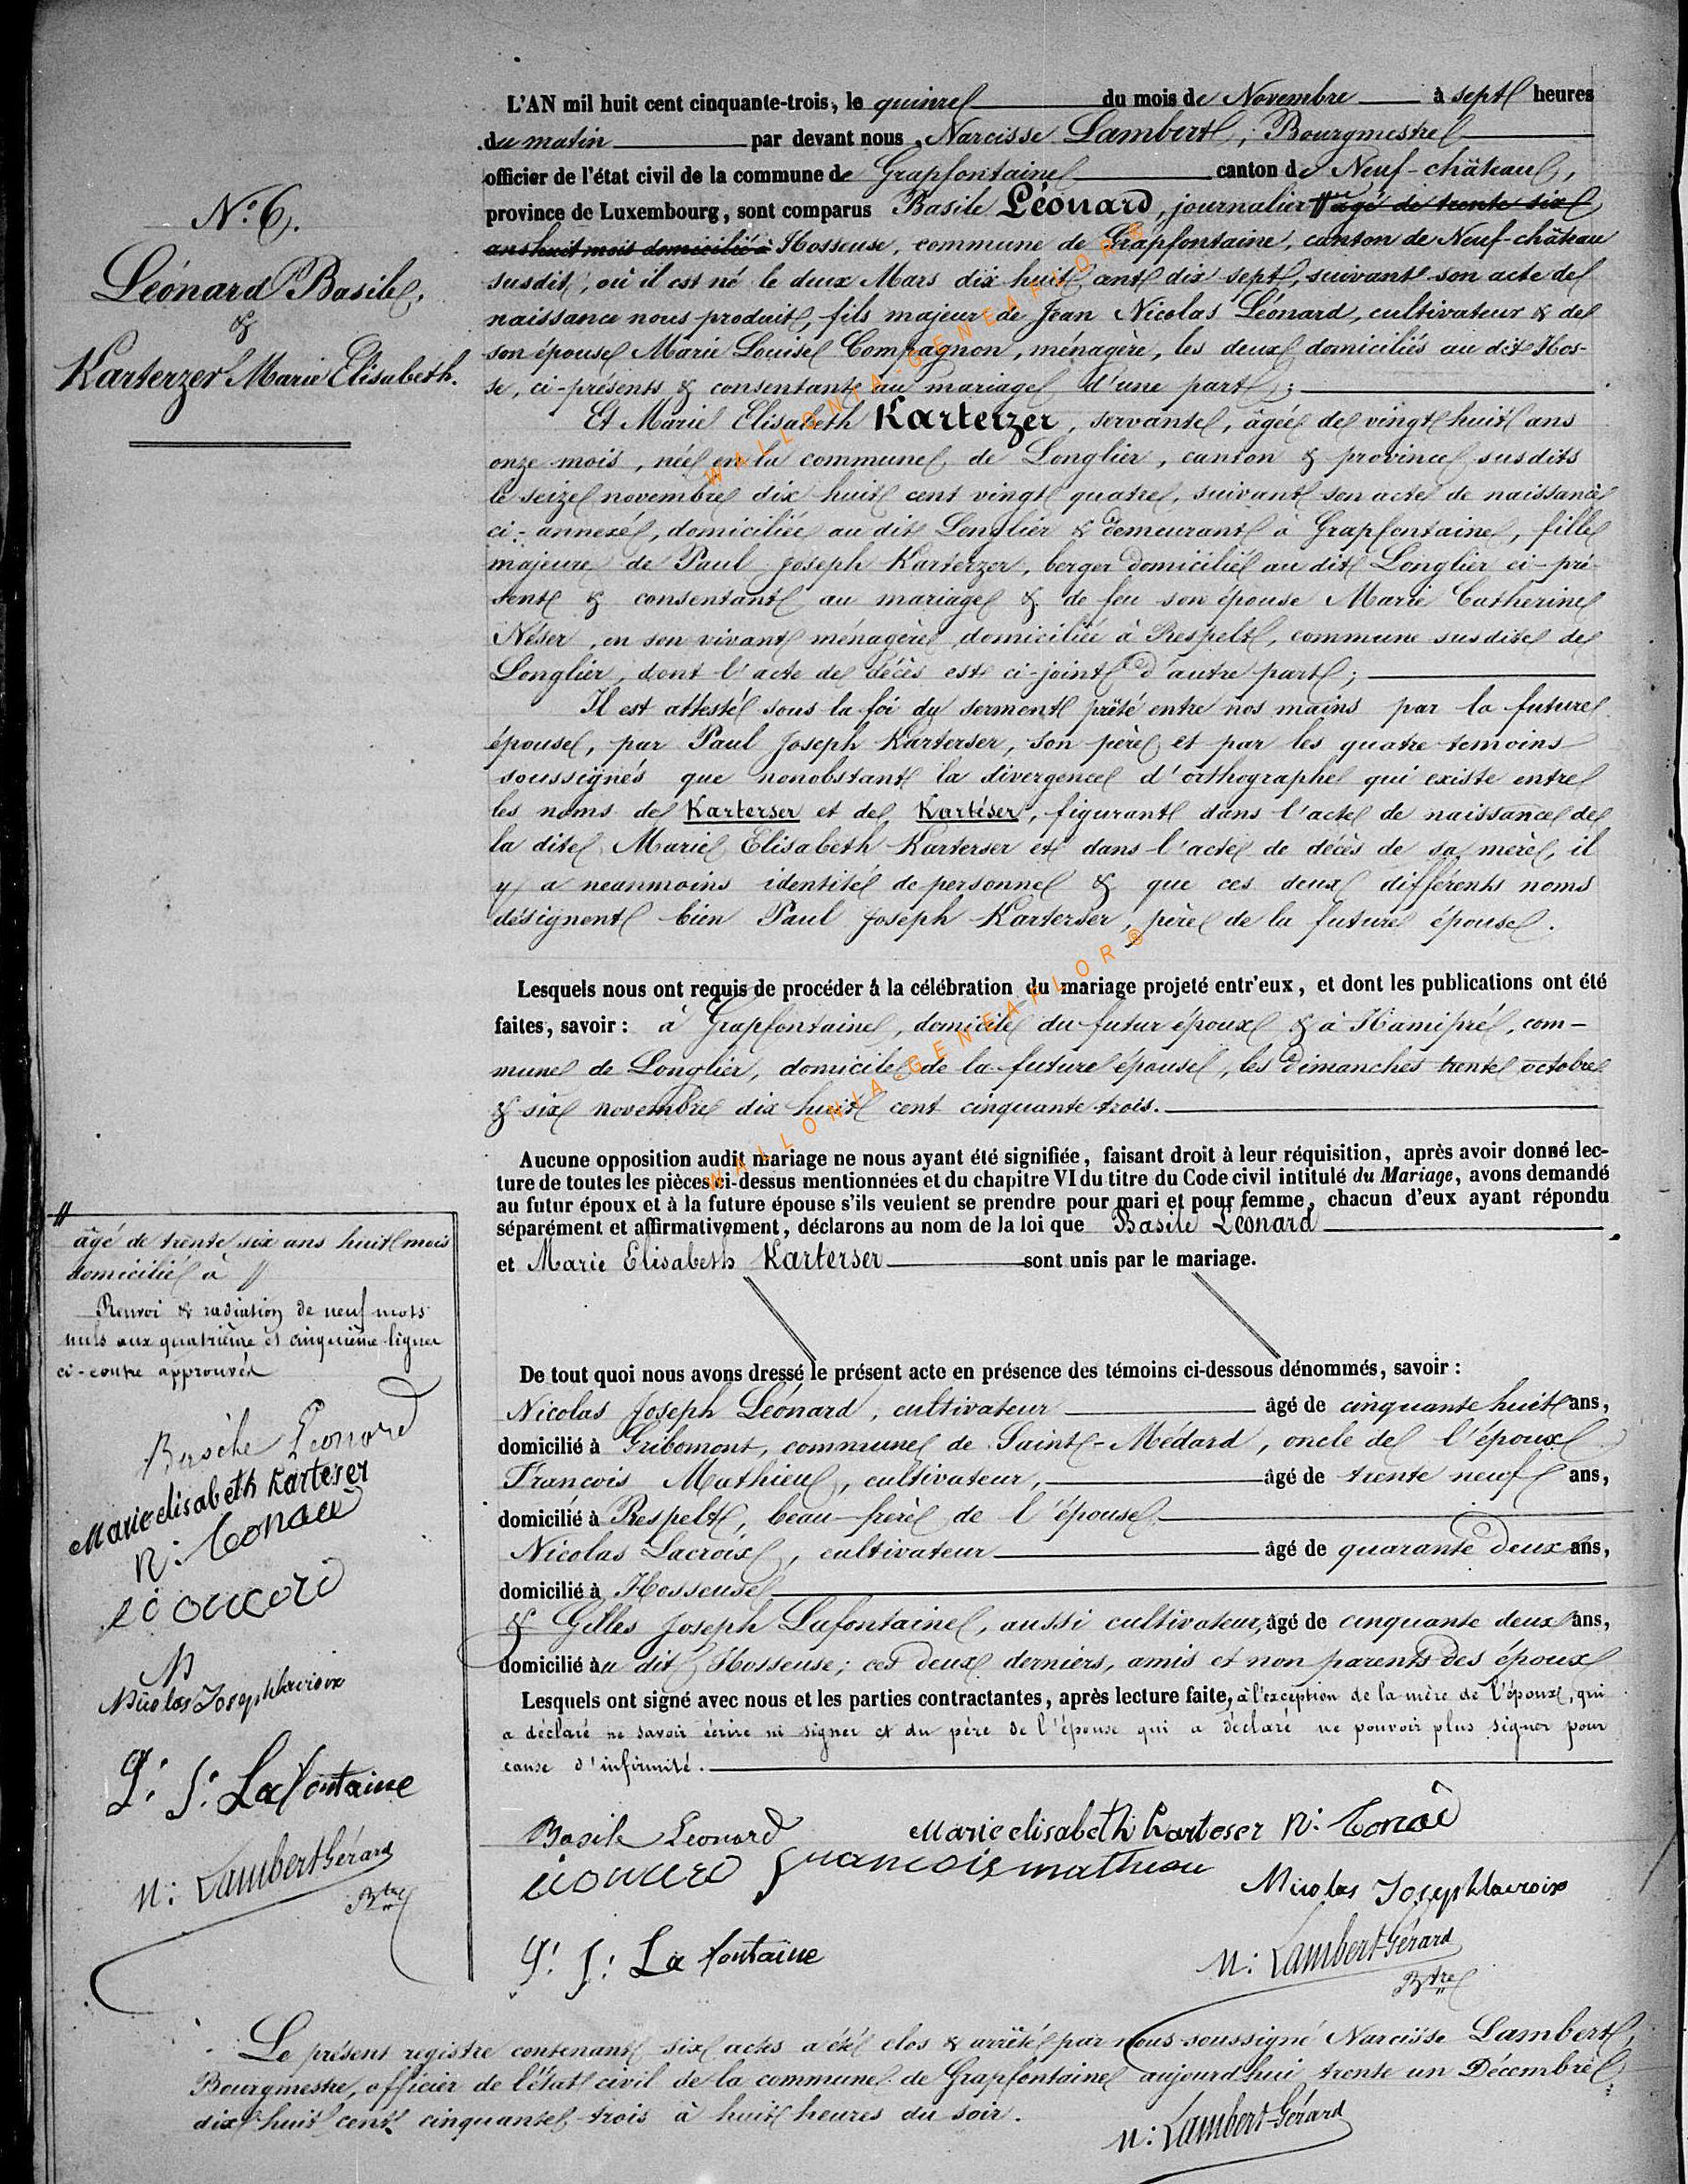 N.º 6.
Léonard Basile,
&
Karterzer Marie Elisabeth.
L'AN mil huit cent cinquante-trois, le quinze du mois de Novembre à sept heures
du matin par devant nous, Narcisse Lambert, Bourgmestre
officier de l'état civil de la commune de Grapfontaine canton de Neuf-château,
province de Luxembourg, sont comparus Basile Léonard, journalier âgé de trente six
ans huit mois domicilié à Hosseuse, commune de Grapfontaine, canton de Neuf-château
susdit, où il est né le deux Mars dix huit cent dix sept, suivant son acte de
naissance nous produit, fils majeur de Jean Nicolas Léonard, cultivateur & de
son épouse Marie Louise Compagnon, ménagère, les deux domiciliés au dit Hos-
se, ci-présents & consentants au mariage d'une part;
Et Marie Elisabeth Karterzer, servante, âgée de vingt huit ans
onze mois, née en la commune de Longlier, canton & province susdits
le seize novembre dix huit cent vingt quatre, suivant son acte de naissance
ci-annexé, domiciliée au dit Longlier & demeurant à Grapfontaine, fille
majeure de Paul Joseph Karterzer, berger domicilié au dit Longlier ci-pré-
sent & consentant au mariage & de feu son épouse Marie Catherine
Néser, en son vivant ménagère domiciliée à Respelt, commune susdite de
Longlier, dont l'acte de décès est ci-joint d'autre part;
Il est attesté sous la foi du serment prêté entre nos mains par la future
épouse, par Paul Joseph Karterser, son père et par les quatre temoins
soussignés que nonobstant la divergence d'orthographe qui existe entre
les noms de Karterser et de Kartéser, figurant dans l'acte de naissance de
la dite Marie Elisabeth Karterser et dans l'acte de décès de sa mère, il
y a neanmoins identité de personne & que ces deux différents noms
désignent bien Paul Joseph Karterser, père de la future épouse.
Lesquels nous ont requis de procéder à la célébration du mariage projeté entr'eux, et dont les publications ont été
faites, savoir : à Grapfontaine, domicile du futur époux & à Hamipré, com-
mune de Longlier, domicile de la future épouse, les Dimanches trente octobre
& six novembre dix huit cent cinquante trois.
Aucune opposition audit mariage ne nous ayant été signifiée, faisant droit à leur réquisition, après avoir donné lec-
ture de toutes les pièces ci-dessus mentionnées et du chapitre VI du titre du Code civil intitulé du Mariage, avons demandé
au futur époux et à la future épouse s'ils veulent se prendre pour mari et pour femme, chacun d'eux ayant répondu
séparément et affirmativement, déclarons au nom de la loi que Basile Léonard
et Marie Elisabeth Karterser sont unis par le mariage.
De tout quoi nous avons dressé le présent acte en présence des témoins ci-dessous dénommés, savoir :
Nicolas Joseph Léonard, cultivateur âgé de cinquante huit ans,
domicilié à Gribomont, commune de Saint-Médard, oncle de l'époux
François Mathieu, cultivateur, âgé de trente neuf ans,
domicilié à Respelt, beau-frère de l'épouse.
Nicolas Lacroix, cultivateur âgé de quarante deux ans,
domicilié à Hosseuse
& Gilles Joseph Lafontaine, aussi cultivateur, âgé de cinquante deux ans,
domicilié au dit Hosseuse; ces deux derniers, amis et non parents des époux
Lesquels ont signé avec nous et les parties contractantes, après lecture faite, à l'exception de la mère de l'époux, qui
a déclaré ne savoir écrire ni signer et du père de l'épouse qui a déclaré ne pouvoir plus signer pour
cause d'infirmité.
âgé de trente six ans huit mois
domicilié à
Renvoi & radiation de neuf mots
nuls aux quatrième et cinquième lignes
ci-contre approuvés
Basile Leonard
Marie elisabeth Karteser
N: Leonard
Nicolas Joseph lacroix
G: J: Lafontaine
N: Lambert Gérard
Btre
Basile Leonard
Marie elisabeth Karteser
francois mathieu
Nicolas Joseph lacroix
G: J: Lafontaine
N: Lambert-Gérard
Btre
Le présent registre contenant six actes a été clos & arrêté par nous soussigné Narcisse Lambert,
Bourgmestre, officier de l'état civil de la commune de Grapfontaine aujourd'hui trente un Décembre
dix huit cent cinquante trois à huit heures du soir.
N: Lambert-Gérard
WALLONIA-GENEAFLOR®
WALLONIA-GENEAFLOR®